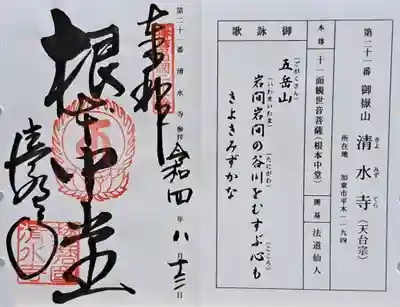 第二十一番 御嶽山 清水寺（天台宗）
きよ みず てら
所在地 加東市平木一一九四
本尊 十一面観世音菩薩（根本中堂） 開基 法道仙人
御詠歌
五岳山（ごがくさん）
岩間岩間の谷川をむすぶ心も
（いわまいわま）（たにがわ）（こころ）
きよきみずかな
第二十一番 清水寺 参拝
奉拝
令和四年八月十三日
根本中堂
清水寺